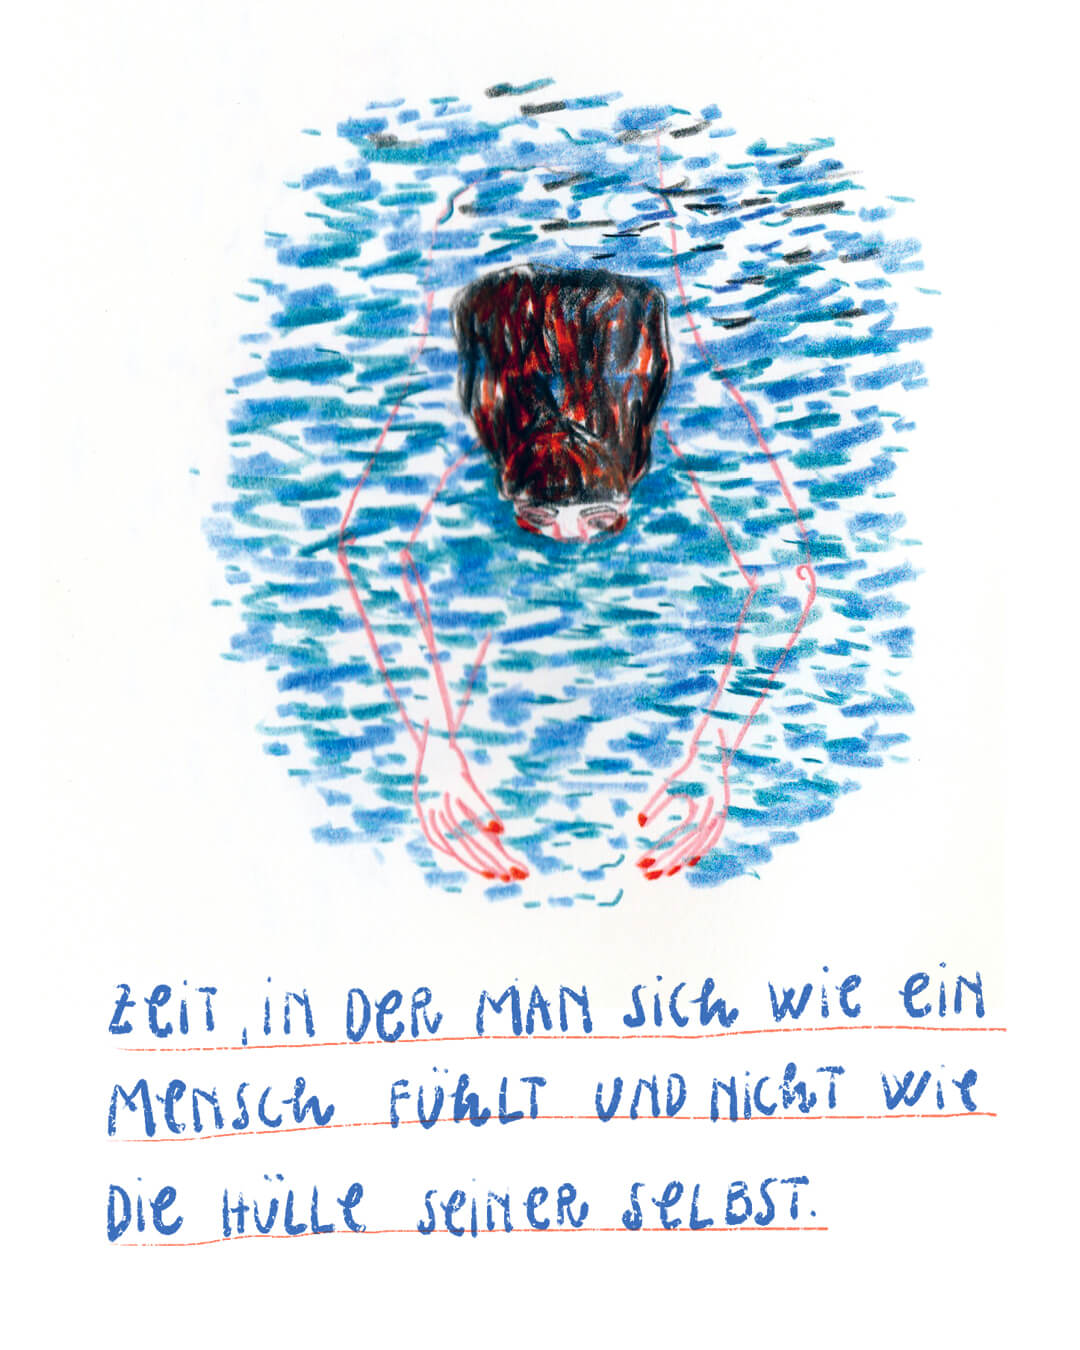 Zeit, in der man sich wie ein
Mensch fühlt und nicht wie
die Hülle seiner selbst.